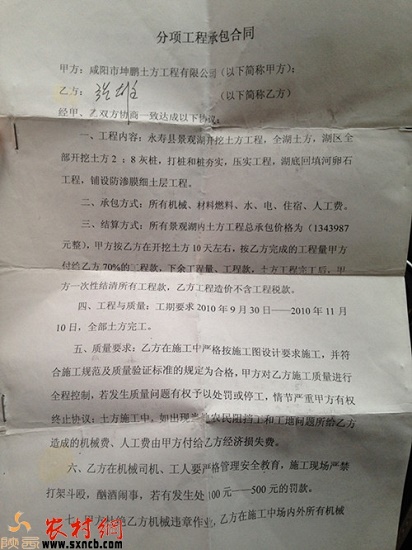 分项工程承包合同
甲方：咸阳市坤鹏土方工程有限公司（以下简称甲方：
乙方：（以下简称乙方）
经甲、乙双方协商一致达成以下协议：
一、工程内容：永寿县景观湖开挖土方工程，全湖土方，湖区全
部开挖土方2：8灰桩，打桩和桩夯实，压实工程，湖底回填河卵石
工程，铺设防渗膜细土层工程。
二、承包方式：所有机械、材料燃料、水、电、住宿、人工费。
三、结算方式：所有景观湖内土方工程总承包价格为（1343987
元整），甲方按乙方在开挖土方10天左右，按乙方完成的工程量甲方
付给乙方70%的工程款，下余工程量、工程款，土方工程完工后，甲
方一次性结清所有工程款，乙方工程造价不含工程税款。
四、工程与质量：工期要求2010年9月30日——2010年11月
10日，全部土方完工。
五、质量要求：乙方在施工中严格按施工图设计要求施工，并符
合施工规范及质量验证标准的规定为合格，甲方对乙方施工质量进行
全程控制，若发生质量问题有权予以处罚或停工，情节严重甲方有权
终止协议；土方施工中，如出现当地农民阻挡工和工地问题所给乙方
造成的机械费、人工费由甲方付给乙方经济损失费。
六、乙方在机械司机、工人要严格管理安全教育，施工现场严禁
打架斗殴，酗酒闹事，若有发生处100元——500元的罚款。
乙方机械违章作业，乙方在施工中场内外所有机械
陕西农村网
www.sxncb.com